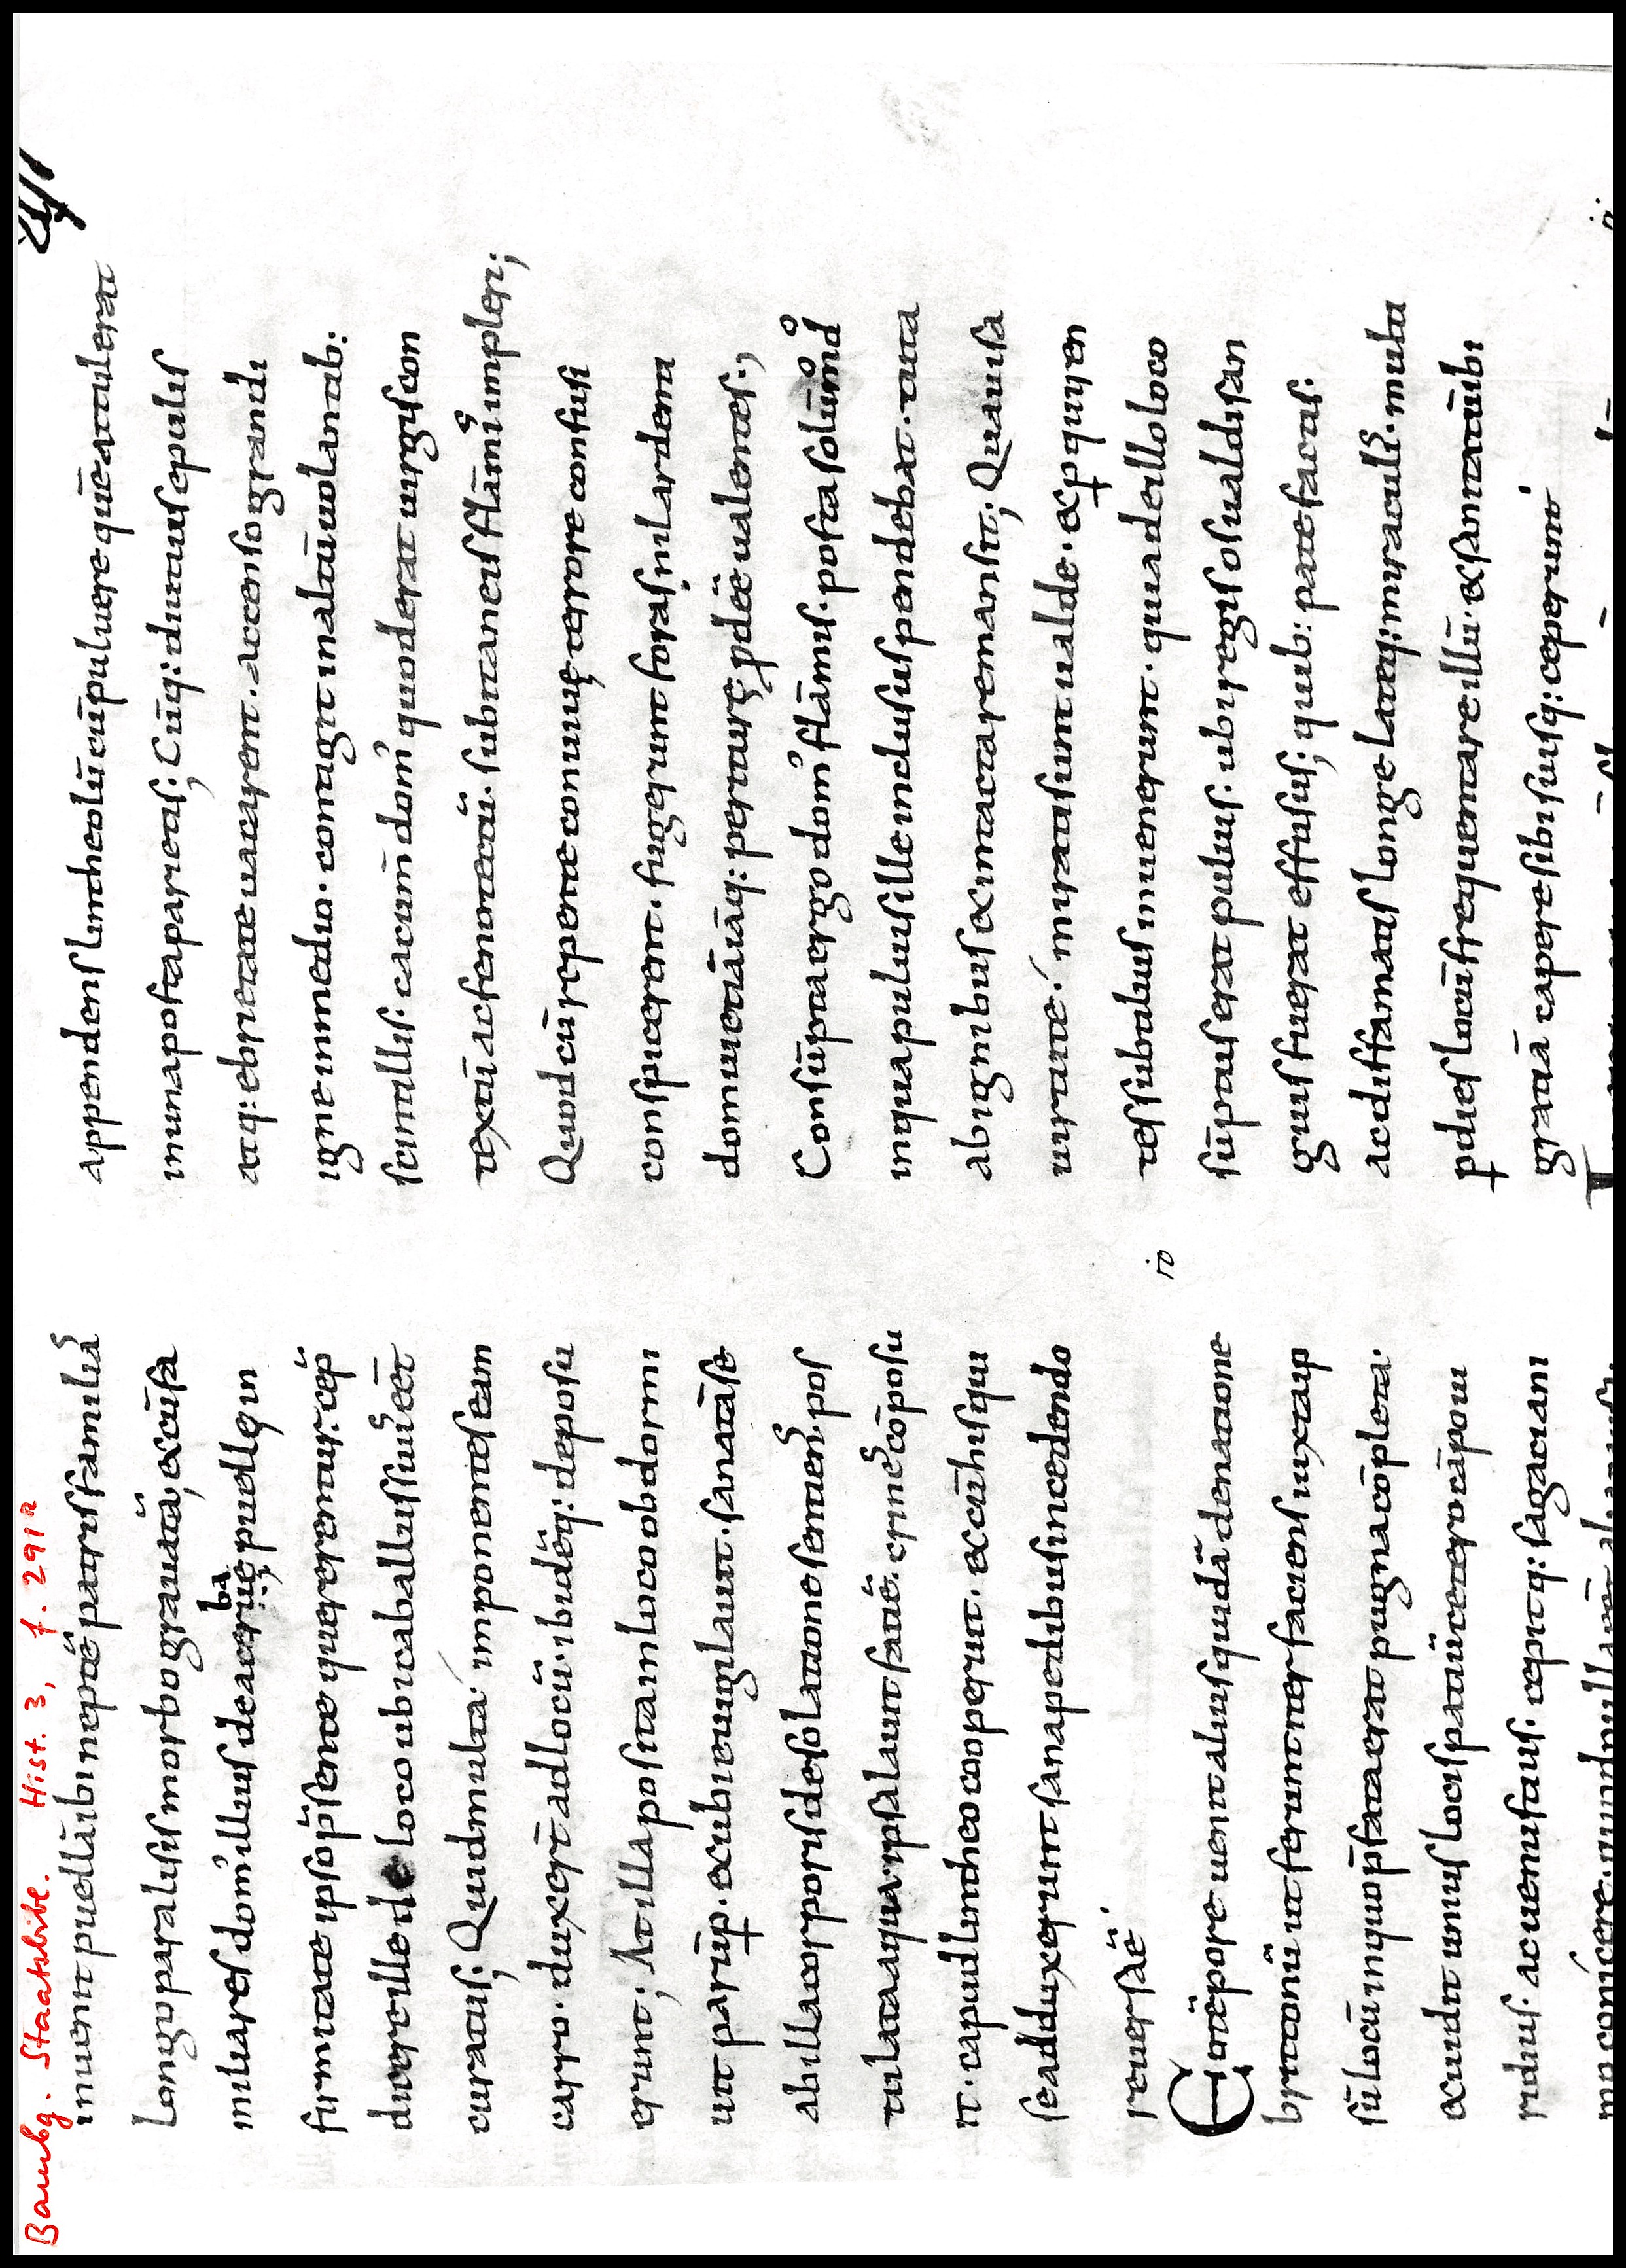 Bambg. Staatsbibl. Hist. 3, f. 291a
291
inuenit puellā ibi neptē patris familias
longo paralisis morbo grauatā, & cū fa
miliares dom' illius de acerue puelle in
ba
firmitate ipso p̄sente quererentur. cep
dicere ille de loco ubi caballus suus eet
curatus; Quid multa' imponentes eam
carro. duxert ad locū. ibidēq: deposu
erunt; At illa posita in loco obdorm
iit parūp. & ubi euigilauit. sanatā se
ab illa corporis desolatione sentiens. pos
tulata aqua ipsa lauit faciē. crines cōposu
it. caput lintheo cooperuit. & cū his qui
se adduxerunt sana pedibus incedendo
reuersa ē'
Eo tēpore uenit alius quidā de natione
britonū ut ferunt iter faciens iuxta ip
sū locū in quo p̄fata erat pugna cōpleta.
& uidit unius loci spatiū cetero cāpo ui
ridius. ac uenustius. cepitq: sagaci ani
mo conicere. quod nulla
io
appendens lintheolū cū puluere quē attulerat
in una posta parietis; Cūq: diutius epulis
atq: ebrietate uacarent. accenso grandi
igne in medio. contigit in altū uolantib:
scintillis. cacumen dom' quod erat uirgis con
textū ac feno tectū. subitaneis flāmis impleri;
Quod cū repente conuiue terrore confusi
conspicerent. fugerunt foras. nil ardenti
domui etiā iāq: periture pdeē ualentes;
Consūpta ergo dom' flāmis. posta solūmodo
in qua puluis ille inclusus pendebat. tuta
ab ignibus & intacta remansit; Qua uisa
uirtute' mirati sunt ualde. & pquiren
tes subtilius inuenerunt. quia de illo loco
sūptus erat puluis. ubi regis osualdi san
guis fuerat effusus; quib: patefactis.
ac diffamatis longe lateq: miraculis. multi
p dies locū frequentare illū. & sanitatū ibi
gratiā capere sibi suisq: ceperunt'